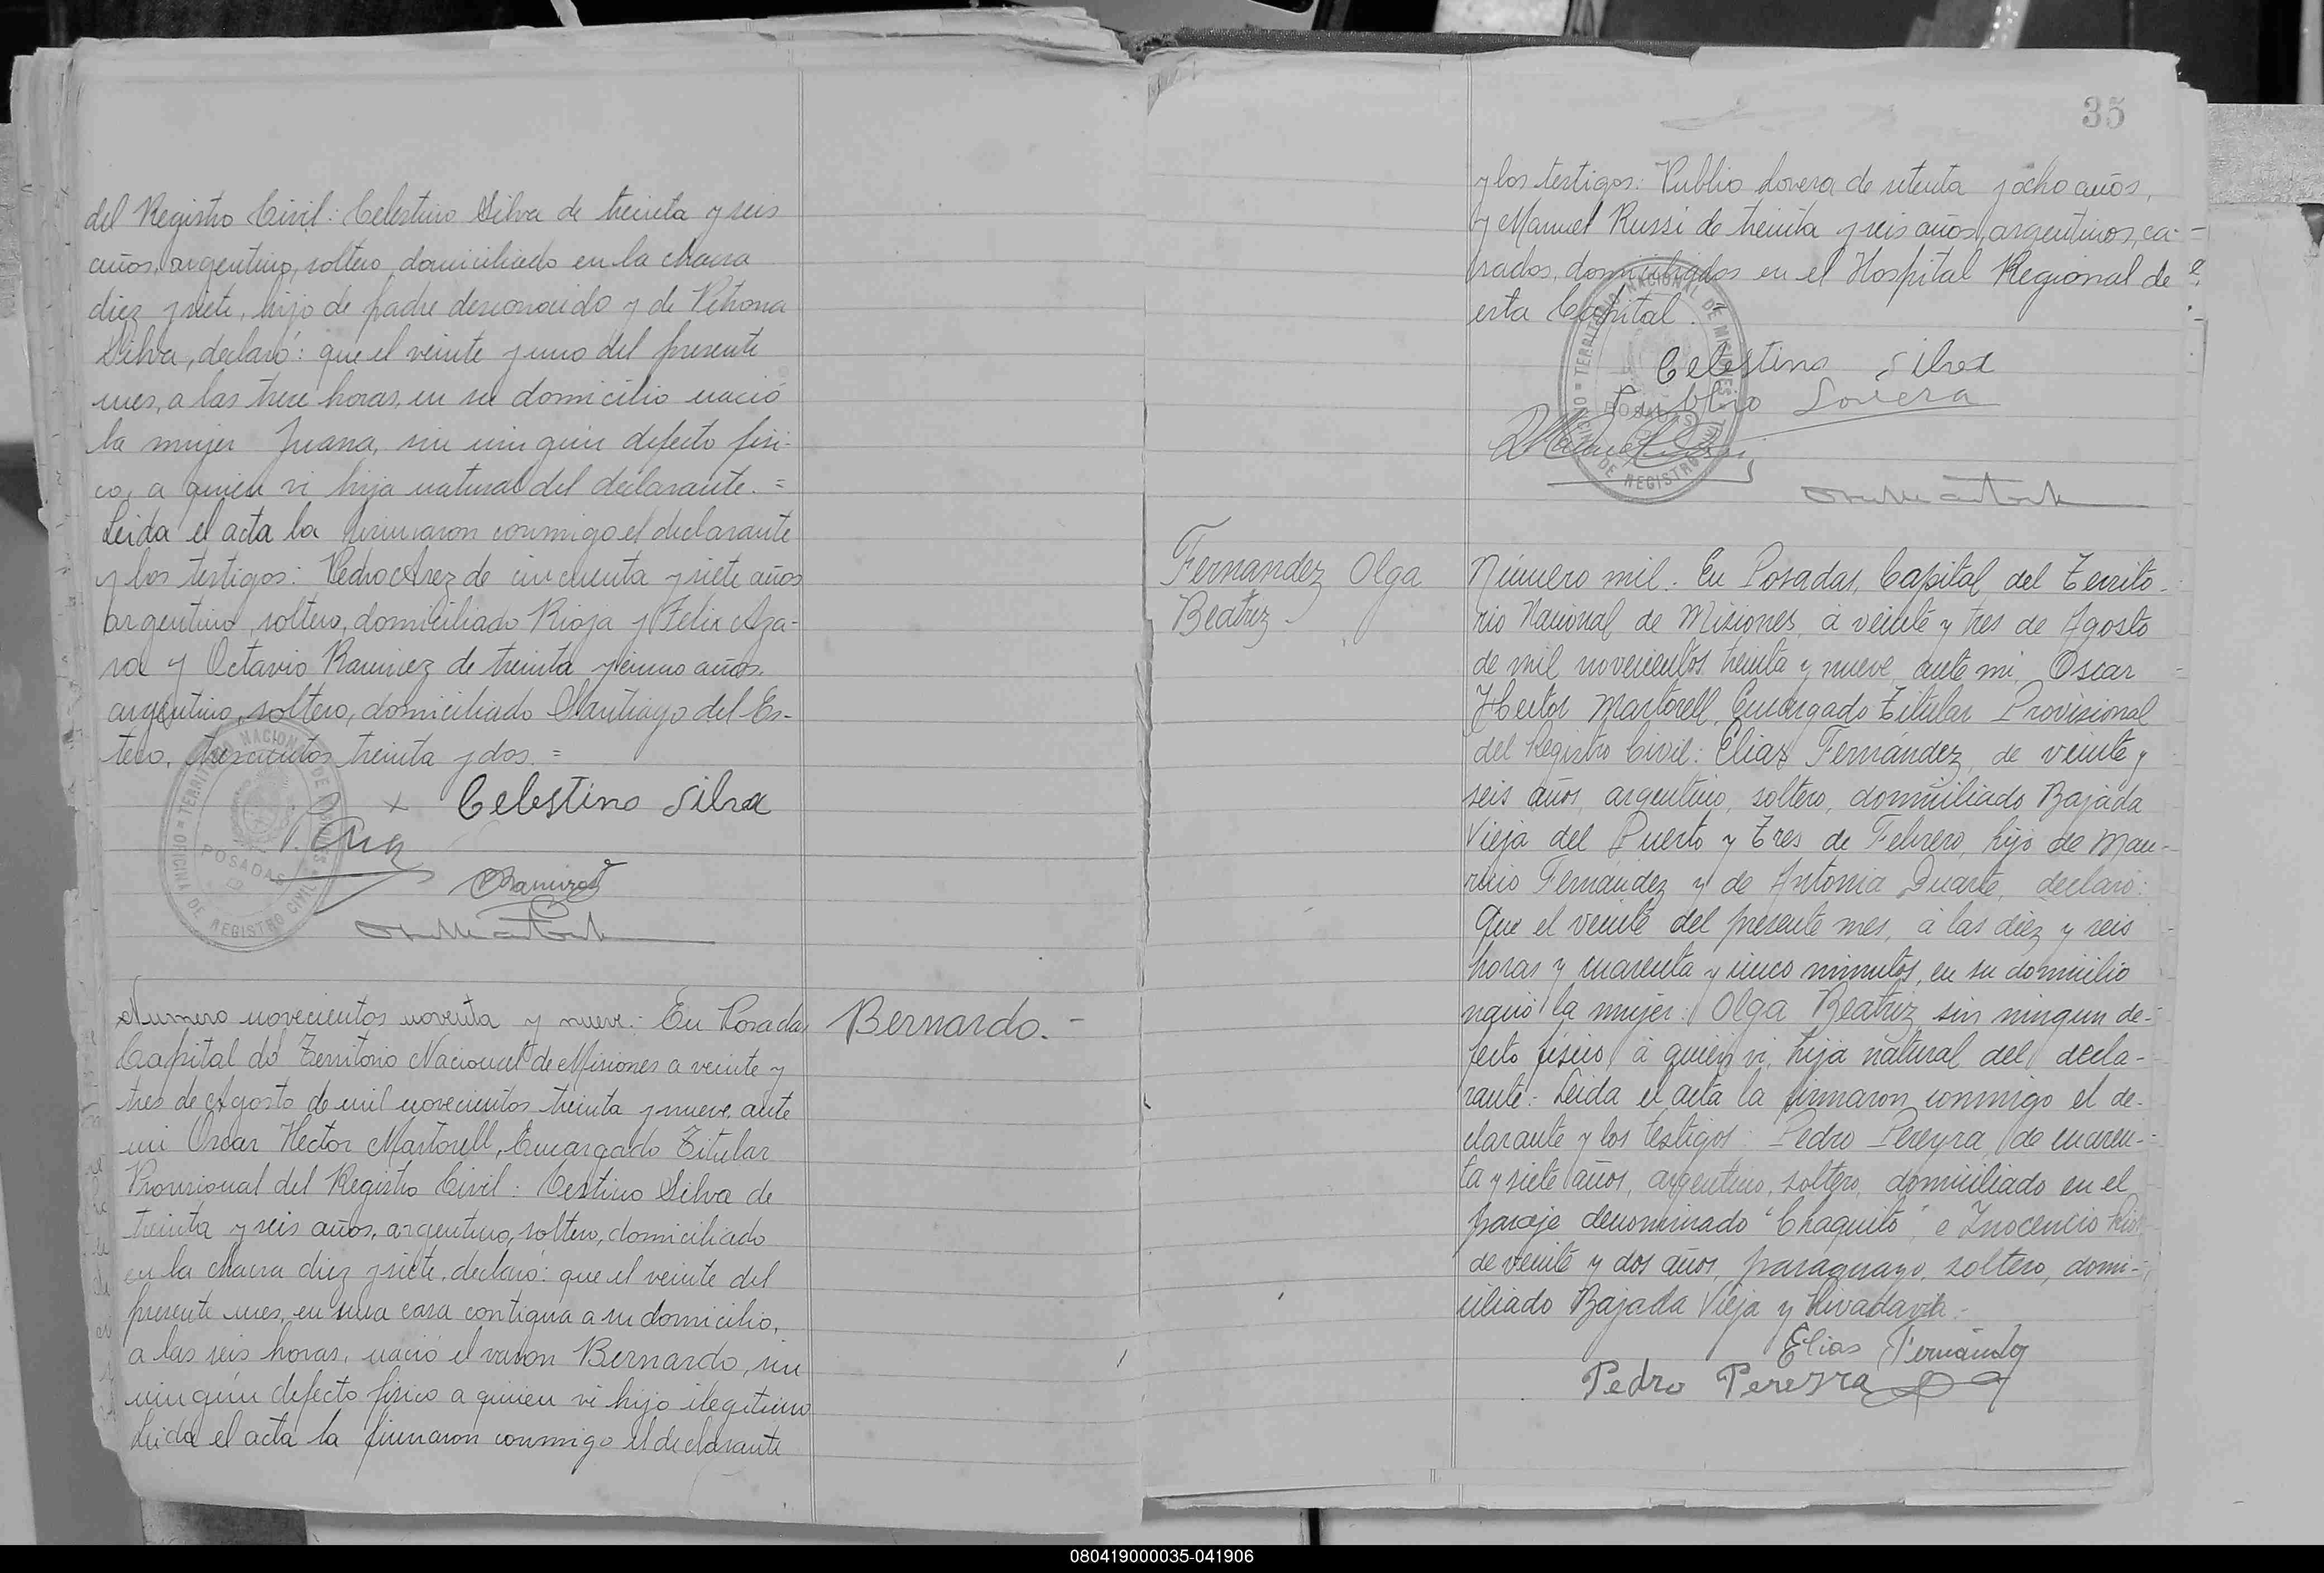 del Registro Civil: Celestino Silva de treinta y seis
años, argentino, soltero, domiciliado en la chacra
diez y siete, hijo de padre desconocido y de Petrona
Silva, declaró: que el veinte y uno del presente
mes, a las trece horas, en su domicilio nació
la mujer Juana, sin ningun defecto físi-
co, a quien vi hija natural del declarante. =
Leida el acta la firmaron conmigo el declarante
y los testigos: Pedro de cincuenta y siete años
argentino, soltero, domiciliado Rioja y Felix Aza-
ra y Octavio Ramirez de treinta y cinco años.
argentino, soltero, domiciliado Santiago del Es-
tero, trescientos treinta y dos. =
Celestino Silva
ORamirez
TERRITORIO NACIONAL DE MISIONES
POSADAS
OFICINA DE REGISTRO CIVIL
Numero novecientos noventa y nueve.- En Posadas
Capital del Territorio Nacional de Misiones a veinte y
tres de Agosto de mil novecientos treinta y nueve, ante
mi Oscar Hector Martorell, Encargado Titular
Provisional del Registro Civil: Cestino Silva de
treinta y seis años, argentino, soltero, domiciliado
en la chacra diez y siete, declaró: que el veinte del
presente mes, en una casa contigua a su domicilio,
a las seis horas, nació el varon Bernardo, sin
ningún defecto físico a quien vi hijo ilegitimo
Leida el acta la firmaron conmigo el declarante
Bernardo.-
35
y los testigos: Publio Lovera de setenta y ocho años,
y Manuel Russi de treinta y seis años, argentinos, ca-
sados, domiciliados en el Hospital Regional de
esta Capital.
Celestino Silva
Publio Lovera
TERRITORIO NACIONAL DE MISIONES
POSADAS
DE REGISTRO
Fernandez Olga
Beatriz.-
Número mil. En Posadas, Capital del Territo-
rio Nacional de Misiones, á veinte y tres de Agosto
de mil novecientos treinta y nueve, ante mi, Oscar
Hector Martorell, Encargado Titular Provisional
del Registro Civil: Elias Fernández, de veinte y
seis años, argentino, soltero, domiciliado Bajada
Vieja del Puerto y Tres de Febrero, hijo de Mau-
ricio Fernández y de Antonia Duarte, declaró:
Que el veinte del presente mes, á las diez y seis
horas y cuarenta y cinco minutos, en su domicilio
nació la mujer: Olga Beatriz, sin ningun de-
fecto físico, á quien vi, hija natural del decla-
rante.- Leida el acta la firmaron conmigo el de-
clarante y los testigos: Pedro Pereyra, de cuaren-
ta y siete años, argentino, soltero, domiciliado en el
paraje denominado "Chaquito", e Inocencio
de veinte y dos años, paraguayo, soltero, domi-
ciliado Bajada Vieja y Rivadavia.-
Elias Fernández
Pedro Pereyra
080419000035-041906